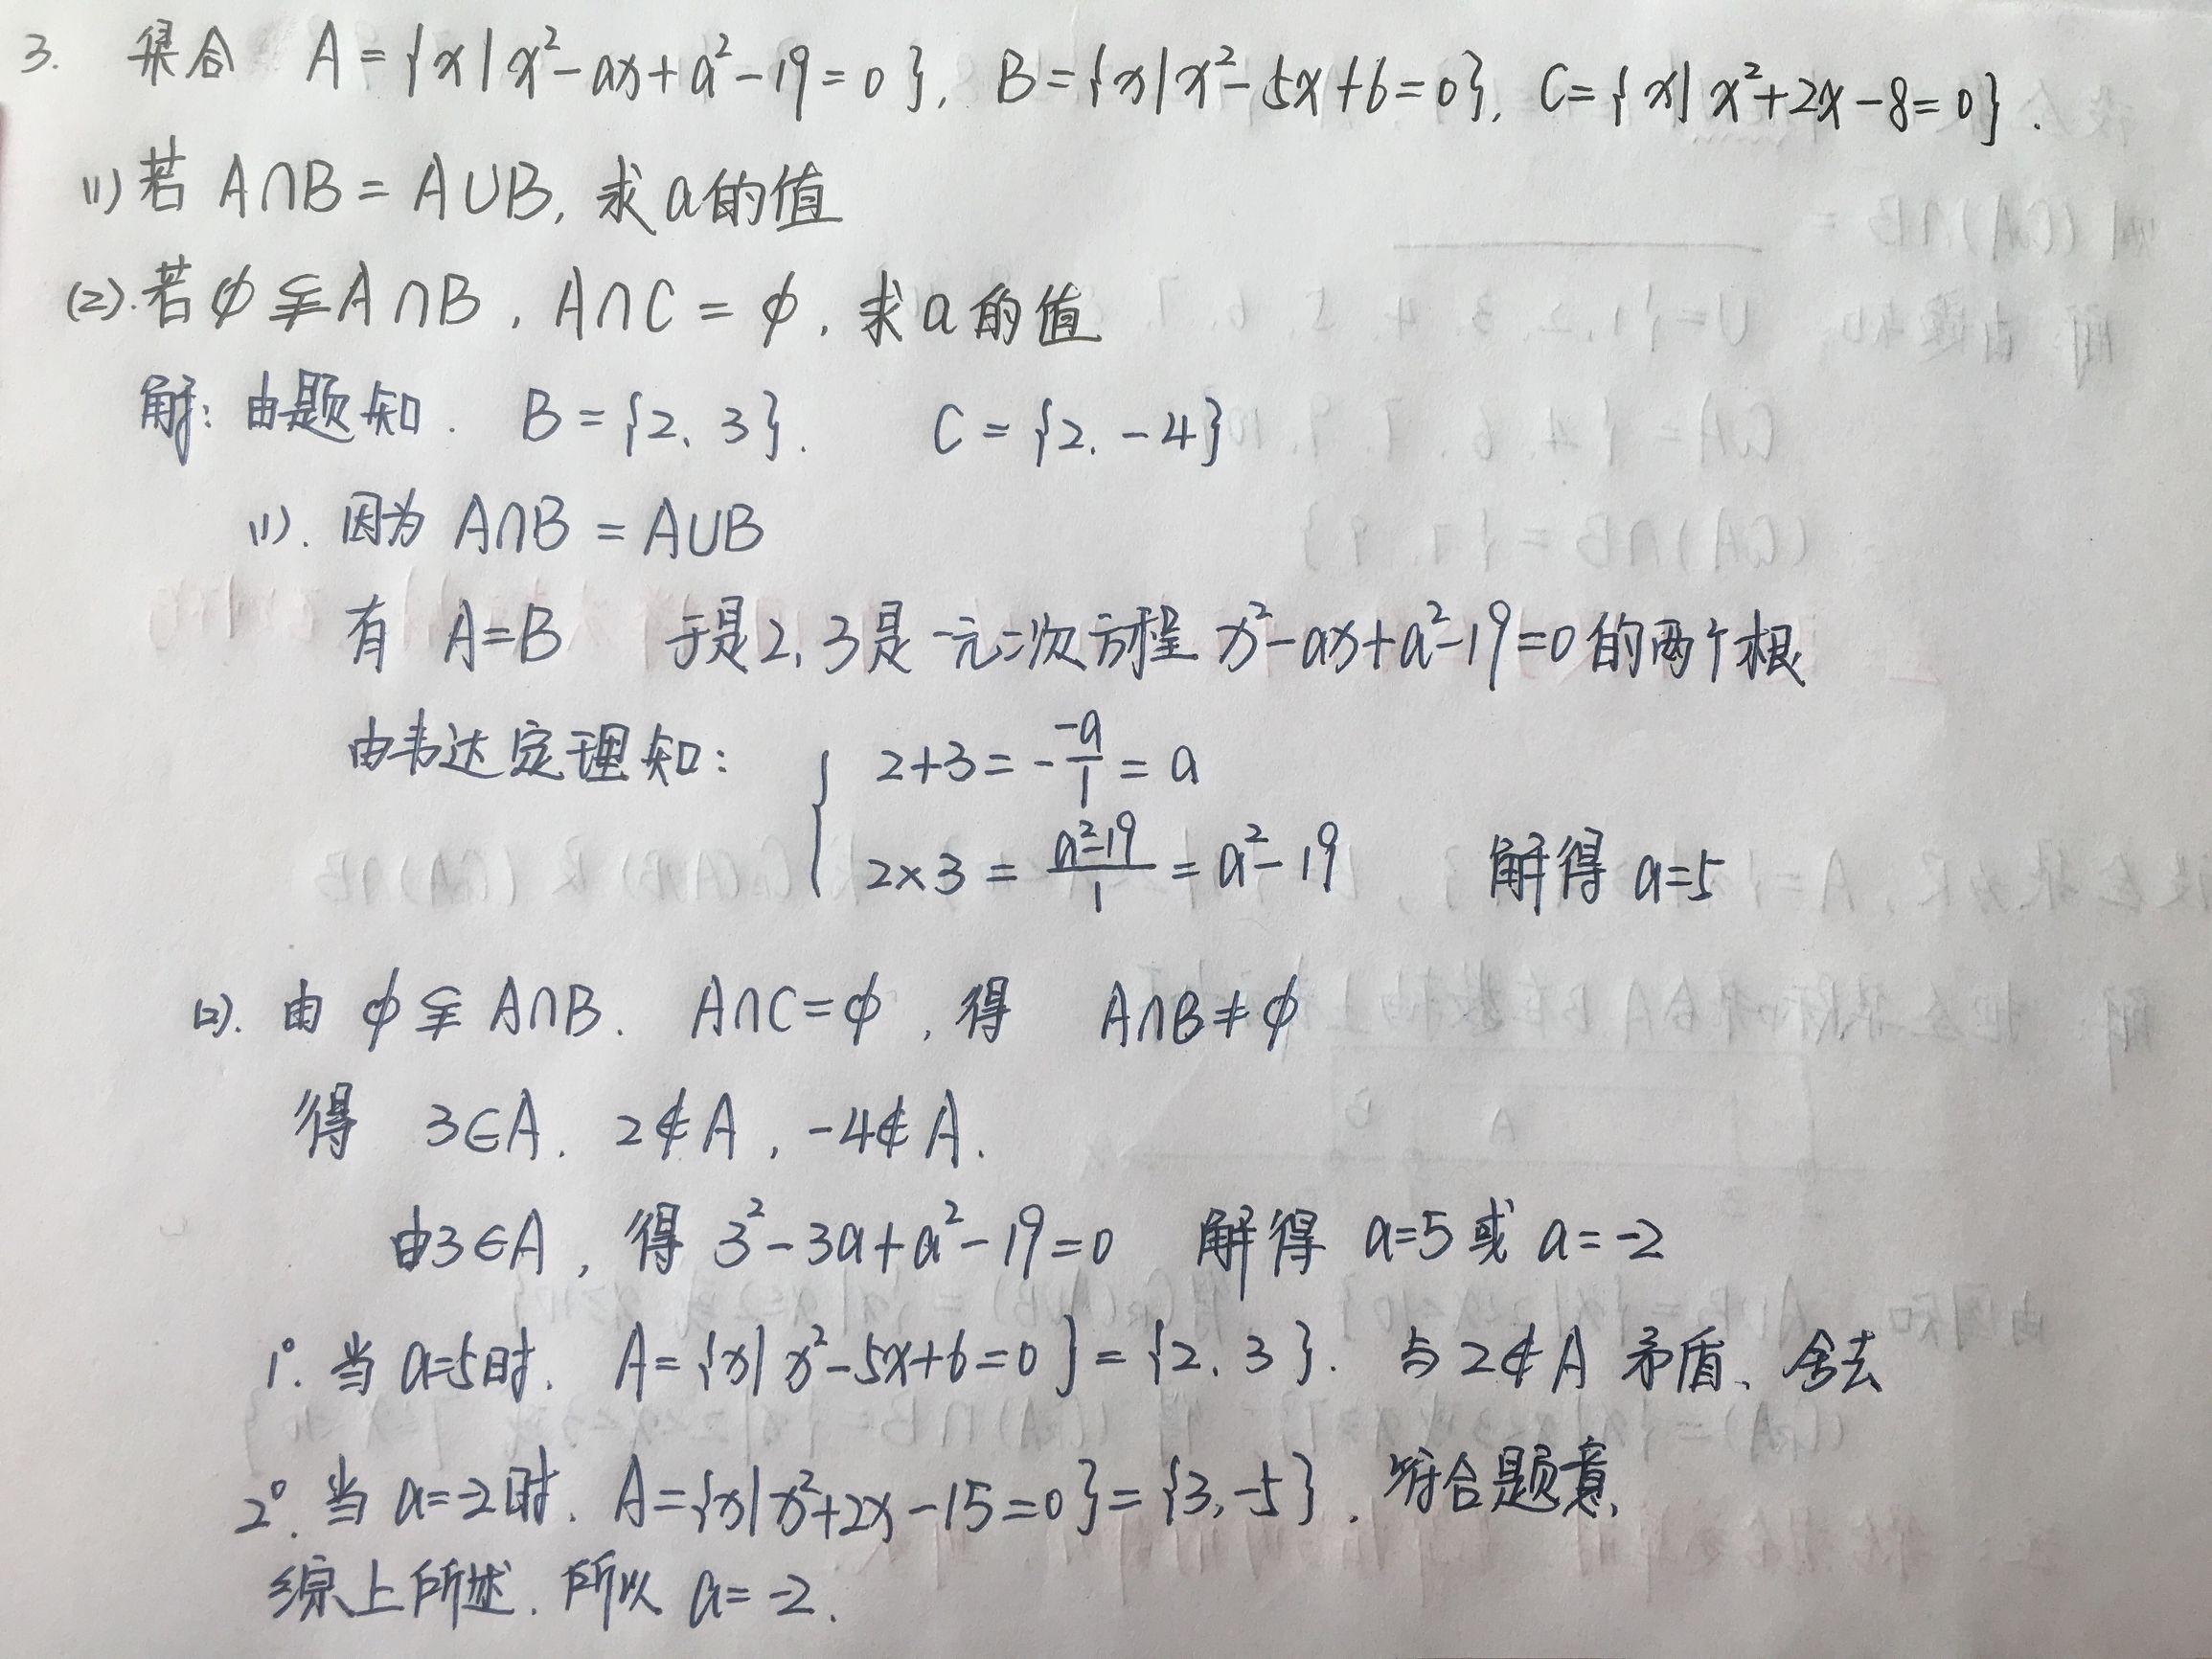 3. 集合 A={x|x²-ax+a²-19=0}, B={x|x²-5x+6=0}, C={x|x²+2x-8=0}.
(1)若 A∩B=A∪B, 求a的值
(2).若 ϕ⫋A∩B, A∩C=ϕ, 求a的值
解: 由题知. B={2、3}. C={2.-4}
(1). 因为 A∩B=A∪B
有 A=B 于是2,3是一元二次方程 x²-ax+a²-19=0的两个根
由韦达定理知: { 2+3=-\frac{-a}{1}=a
2×3=\frac{a²-19}{1}=a²-19 解得 a=5
(2). 由 ϕ⫋A∩B. A∩C=ϕ, 得 A∩B≠ϕ
得 3∈A. 2∉A, -4∉A.
由3∈A, 得 3²-3a+a²-19=0 解得 a=5或 a=-2
1°. 当a=5时. A={x|x²-5x+6=0}={2、3}. 与2∉A 矛盾、舍去
2°. 当a=-2时. A={x|x²+2x-15=0}={3,-5}. 符合题意,
综上所述. 所以 a=-2.